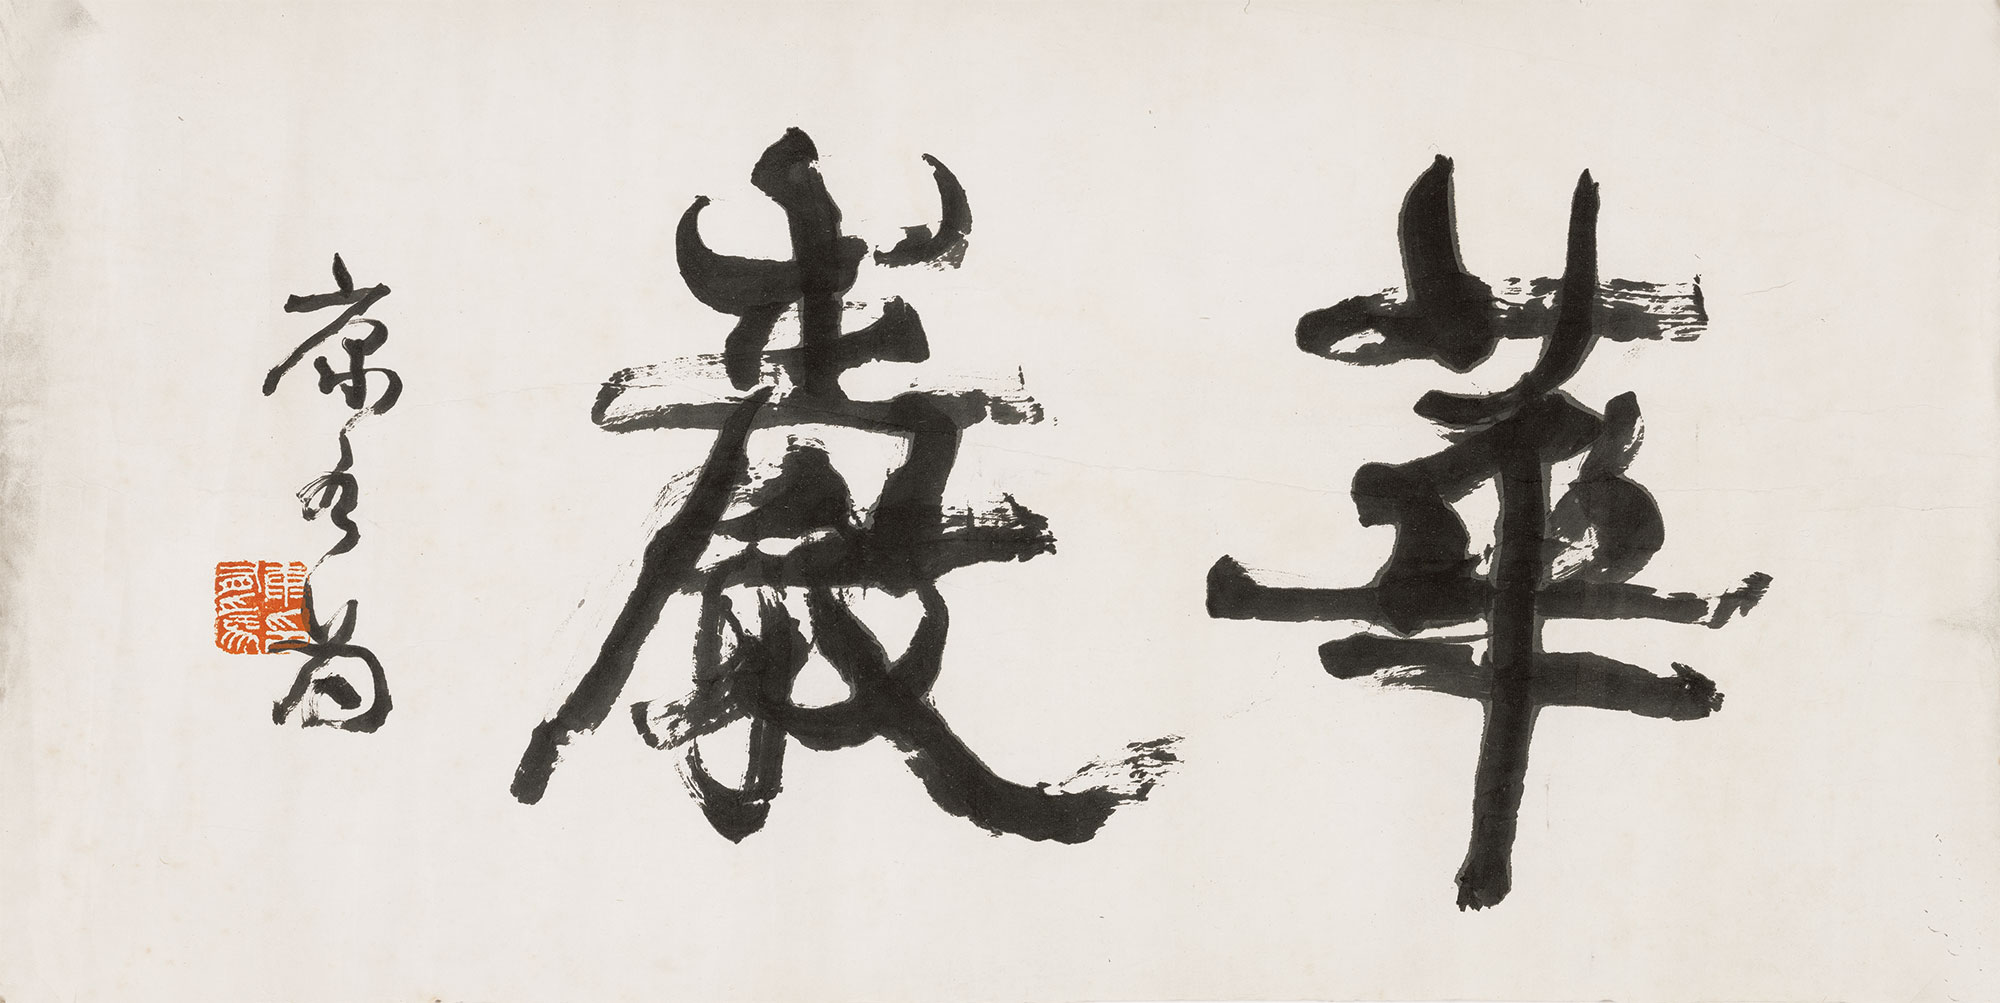 華嚴
康有為